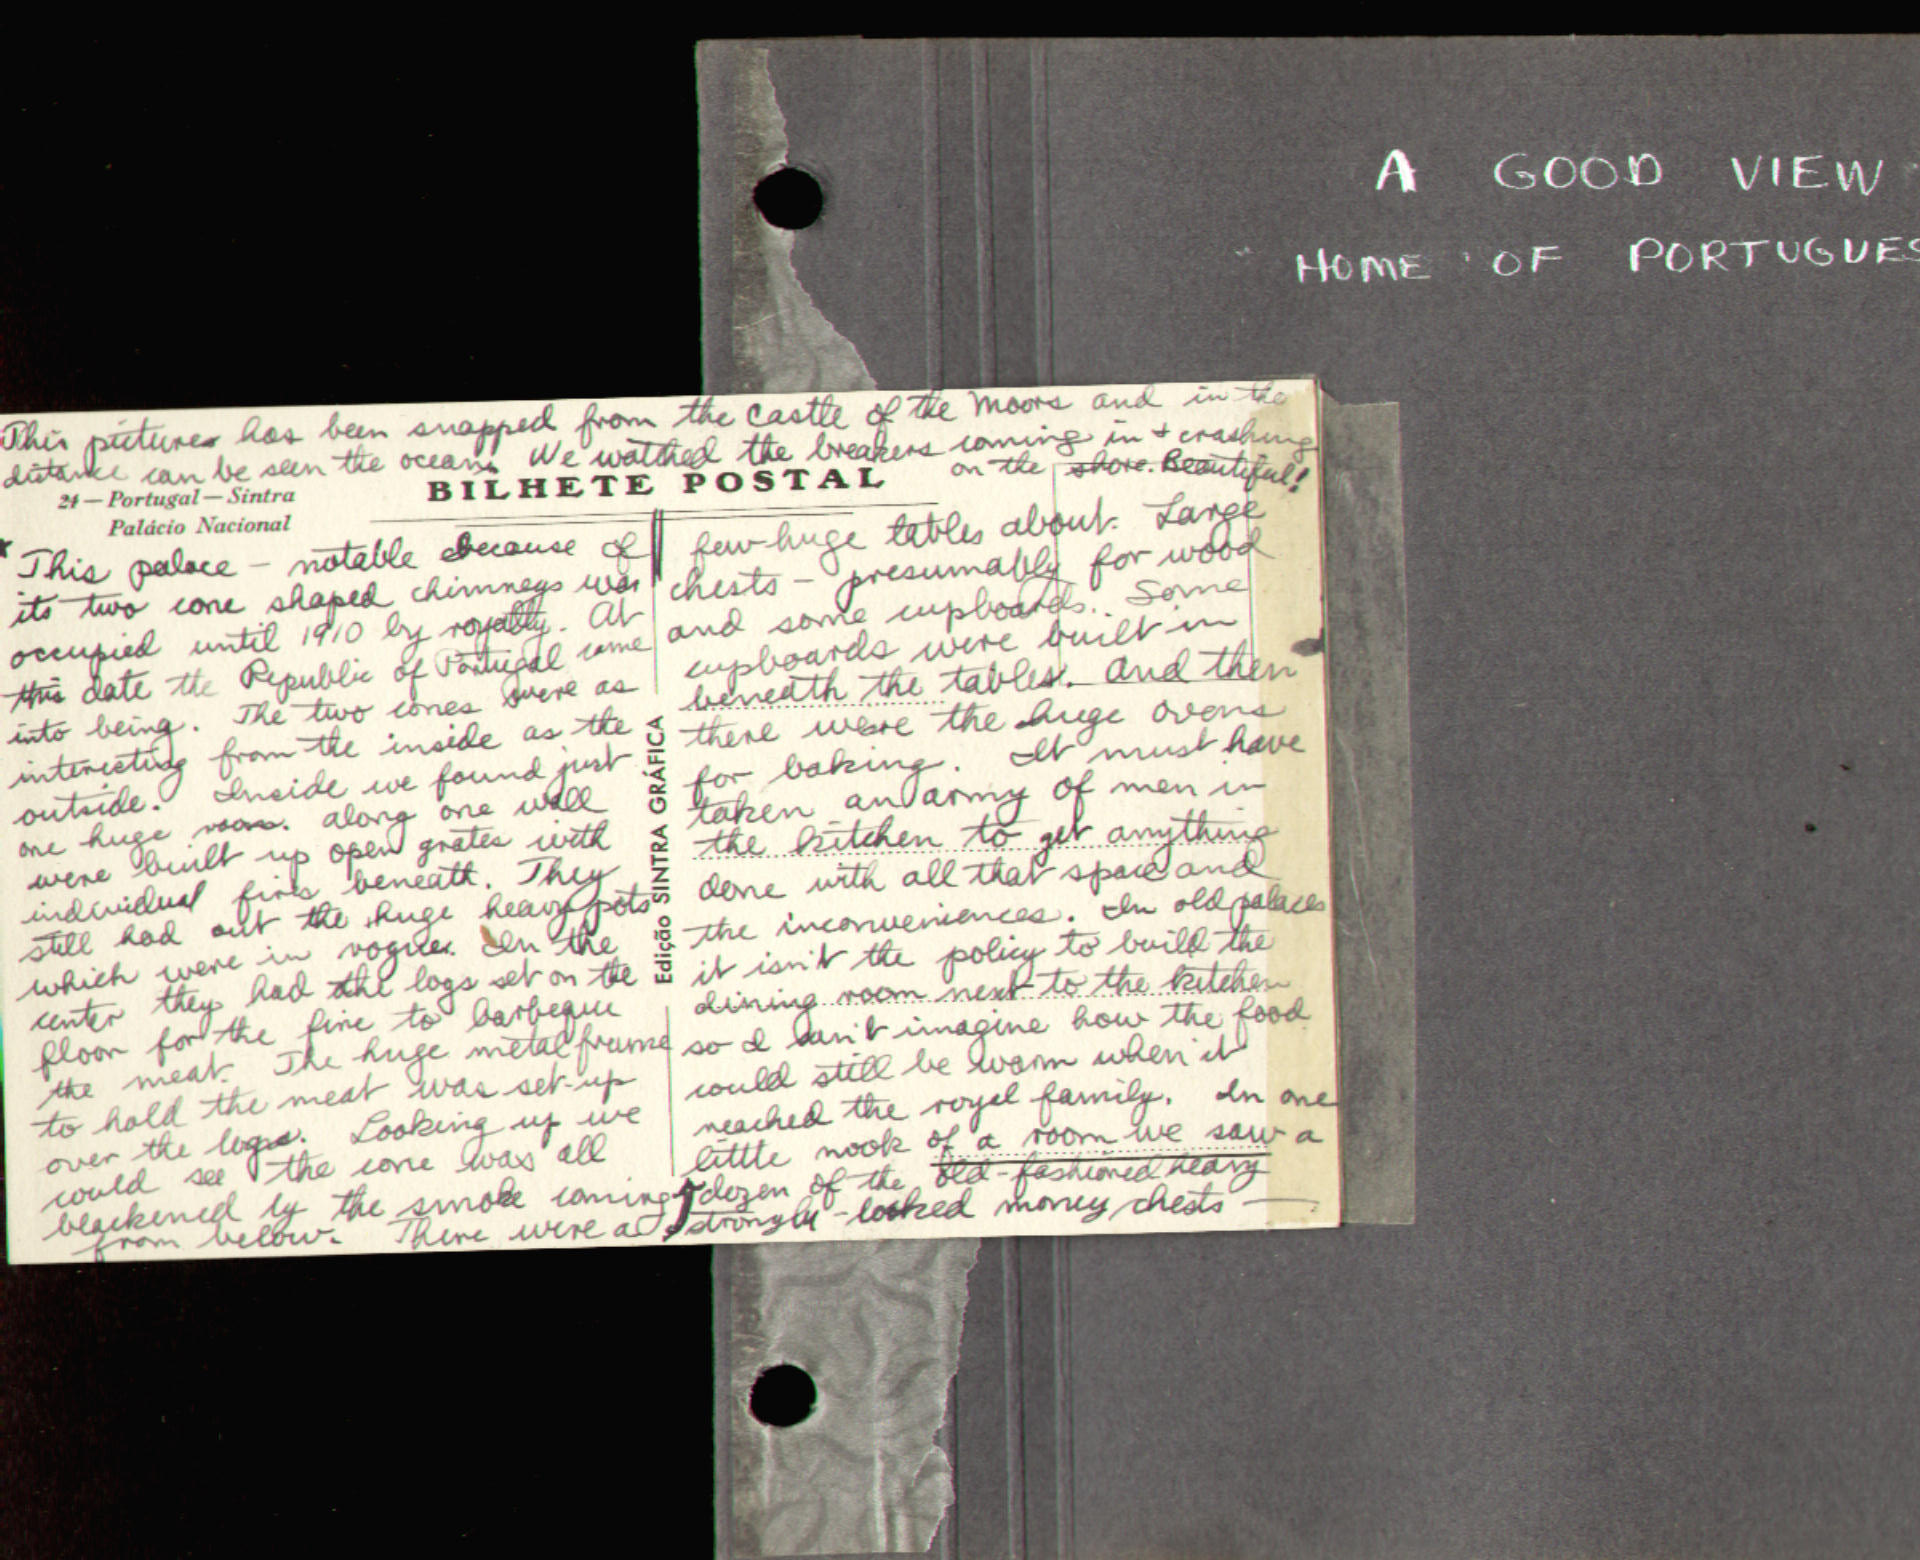 A GOOD VIEW
HOME OF PORTUGUES
This pictures has been snapped from the Castle of the Moors and in the
distance can be seen the ocean. We watched the breakers coming in + crashing
on the shore. Beautiful!
21 — Portugal — Sintra
Palácio Nacional
BILHETE POSTAL
This palace - notable because of
its two cone shaped chimneys was
occupied until 1910 by royalty. At
this date the Republic of Portugal came
into being. The two cones were as
interesting from the inside as the
outside. Inside we found just
one huge room. along one wall
were built up open grates with
individual fires beneath. They
still had out the huge heavy pots
which were in vogue. In the
center they had the logs set on the
floor for the fire to barbeque
the meat. The huge metal frame
to hold the meat was set-up
over the logs. Looking up we
could see the cone was all
blackened by the smoke coming
from below. There were a
Edição SINTRA GRÁFICA
few huge tables about. Large
chests - presumably for wood
and some cupboards. Some
cupboards were built in
beneath the tables. And then
there were the huge ovens
for baking. It must have
taken an army of men in
the kitchen to get anything
done with all that space and
the inconveniences. In old palaces
it isn't the policy to build the
dining room next to the kitchen
so I can't imagine how the food
could still be warm when it
reached the royal family. In one
little nook of a room we saw a
dozen of the old-fashioned heavy
strongly-locked money chests —